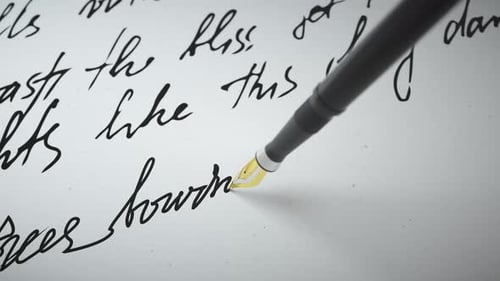 lls
ast the bliss get
hts like this
rees bowin